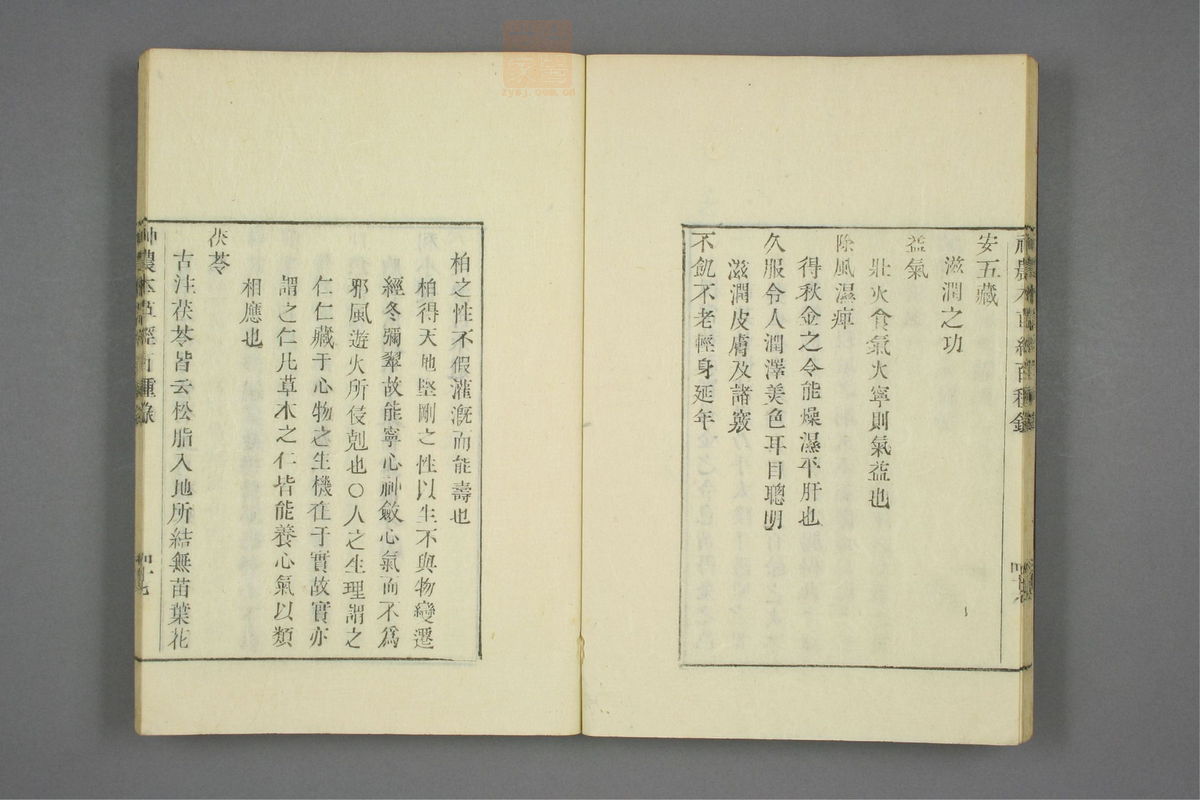 安五藏
滋潤之功
益氣
壯火食氣火寧則氣益也
除風濕痺
得秋金之令能燥濕平肝也
久服令人潤澤美色耳目聰明
滋潤皮膚及諸竅
不飢不老輕身延年
柏之性不假灌漑而能壽也
柏得天地堅剛之性以生不與物變遷
經冬彌翠故能寧心神斂心氣而不爲
邪風遊火所侵剋也〇人之生理謂之
仁仁藏于心物之生機在于實故實亦
謂之仁凡草木之仁皆能養心氣以類
相應也
茯苓
古注茯苓皆云松脂入地所結無苗葉花
zysj.com.cn